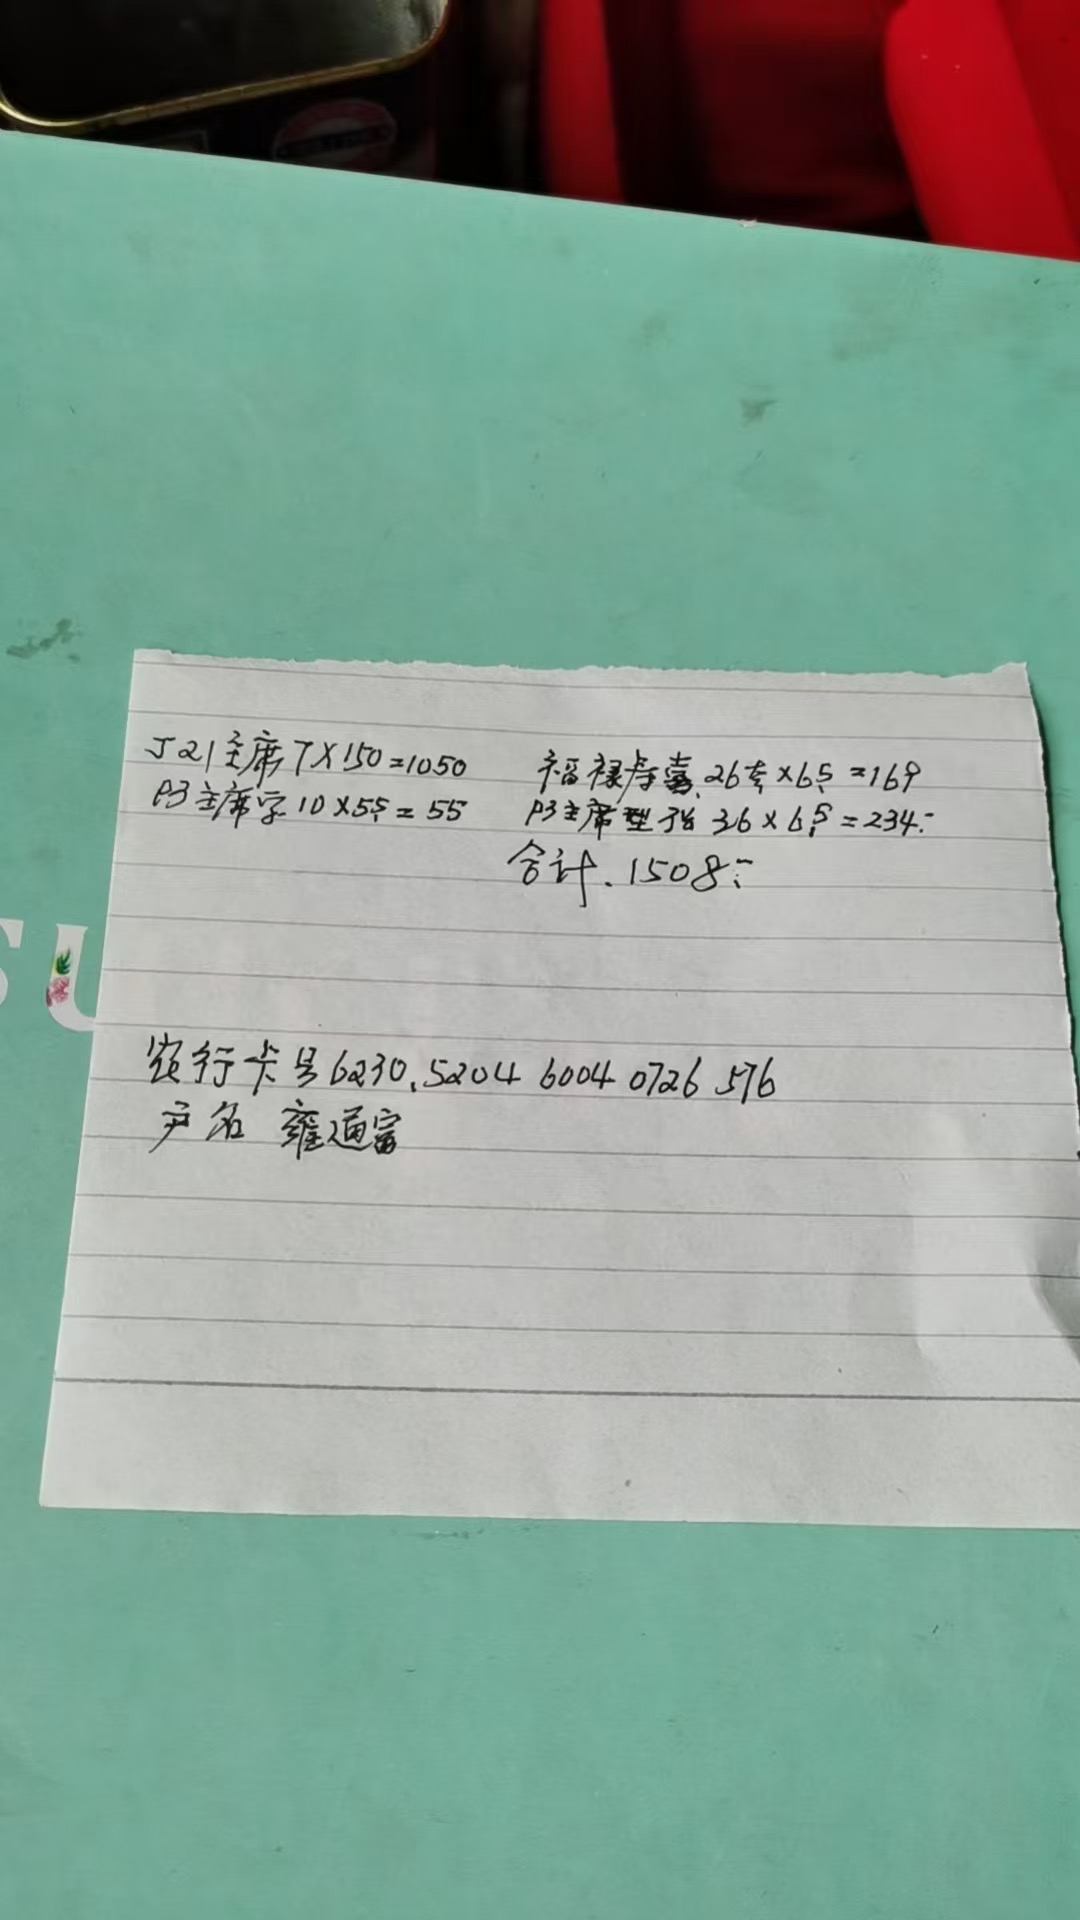 J21主席7×150=1050
福禄寿喜.26套×6.5=169
P3主席字10×5.5=55
P3主席型张36×6.5=234.-
合计.1508.-
SU
农行卡号6230.5204 6004 0726 576
户名 雍道富